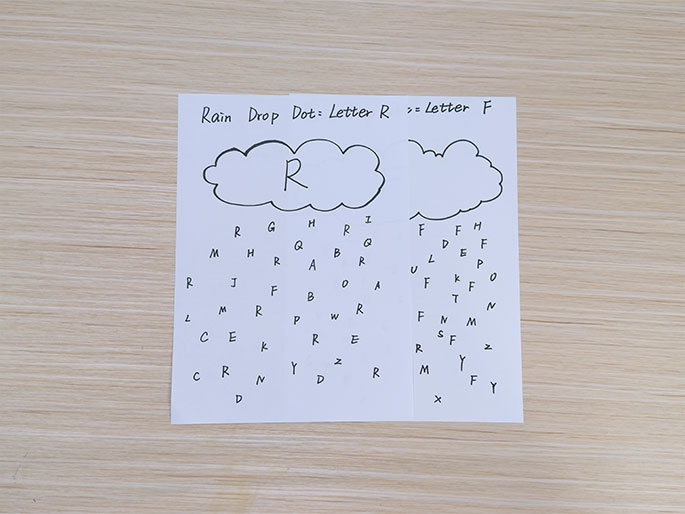 Rain Drop Dot= Letter R := Letter F
R
R G H R I F F H
M H R Q A B Q R D L E F P
R J F B O A U F K F O
L M R P W R T F N M N
C E K R E S F R Z
C R N Y D Z R M Y F Y
D X